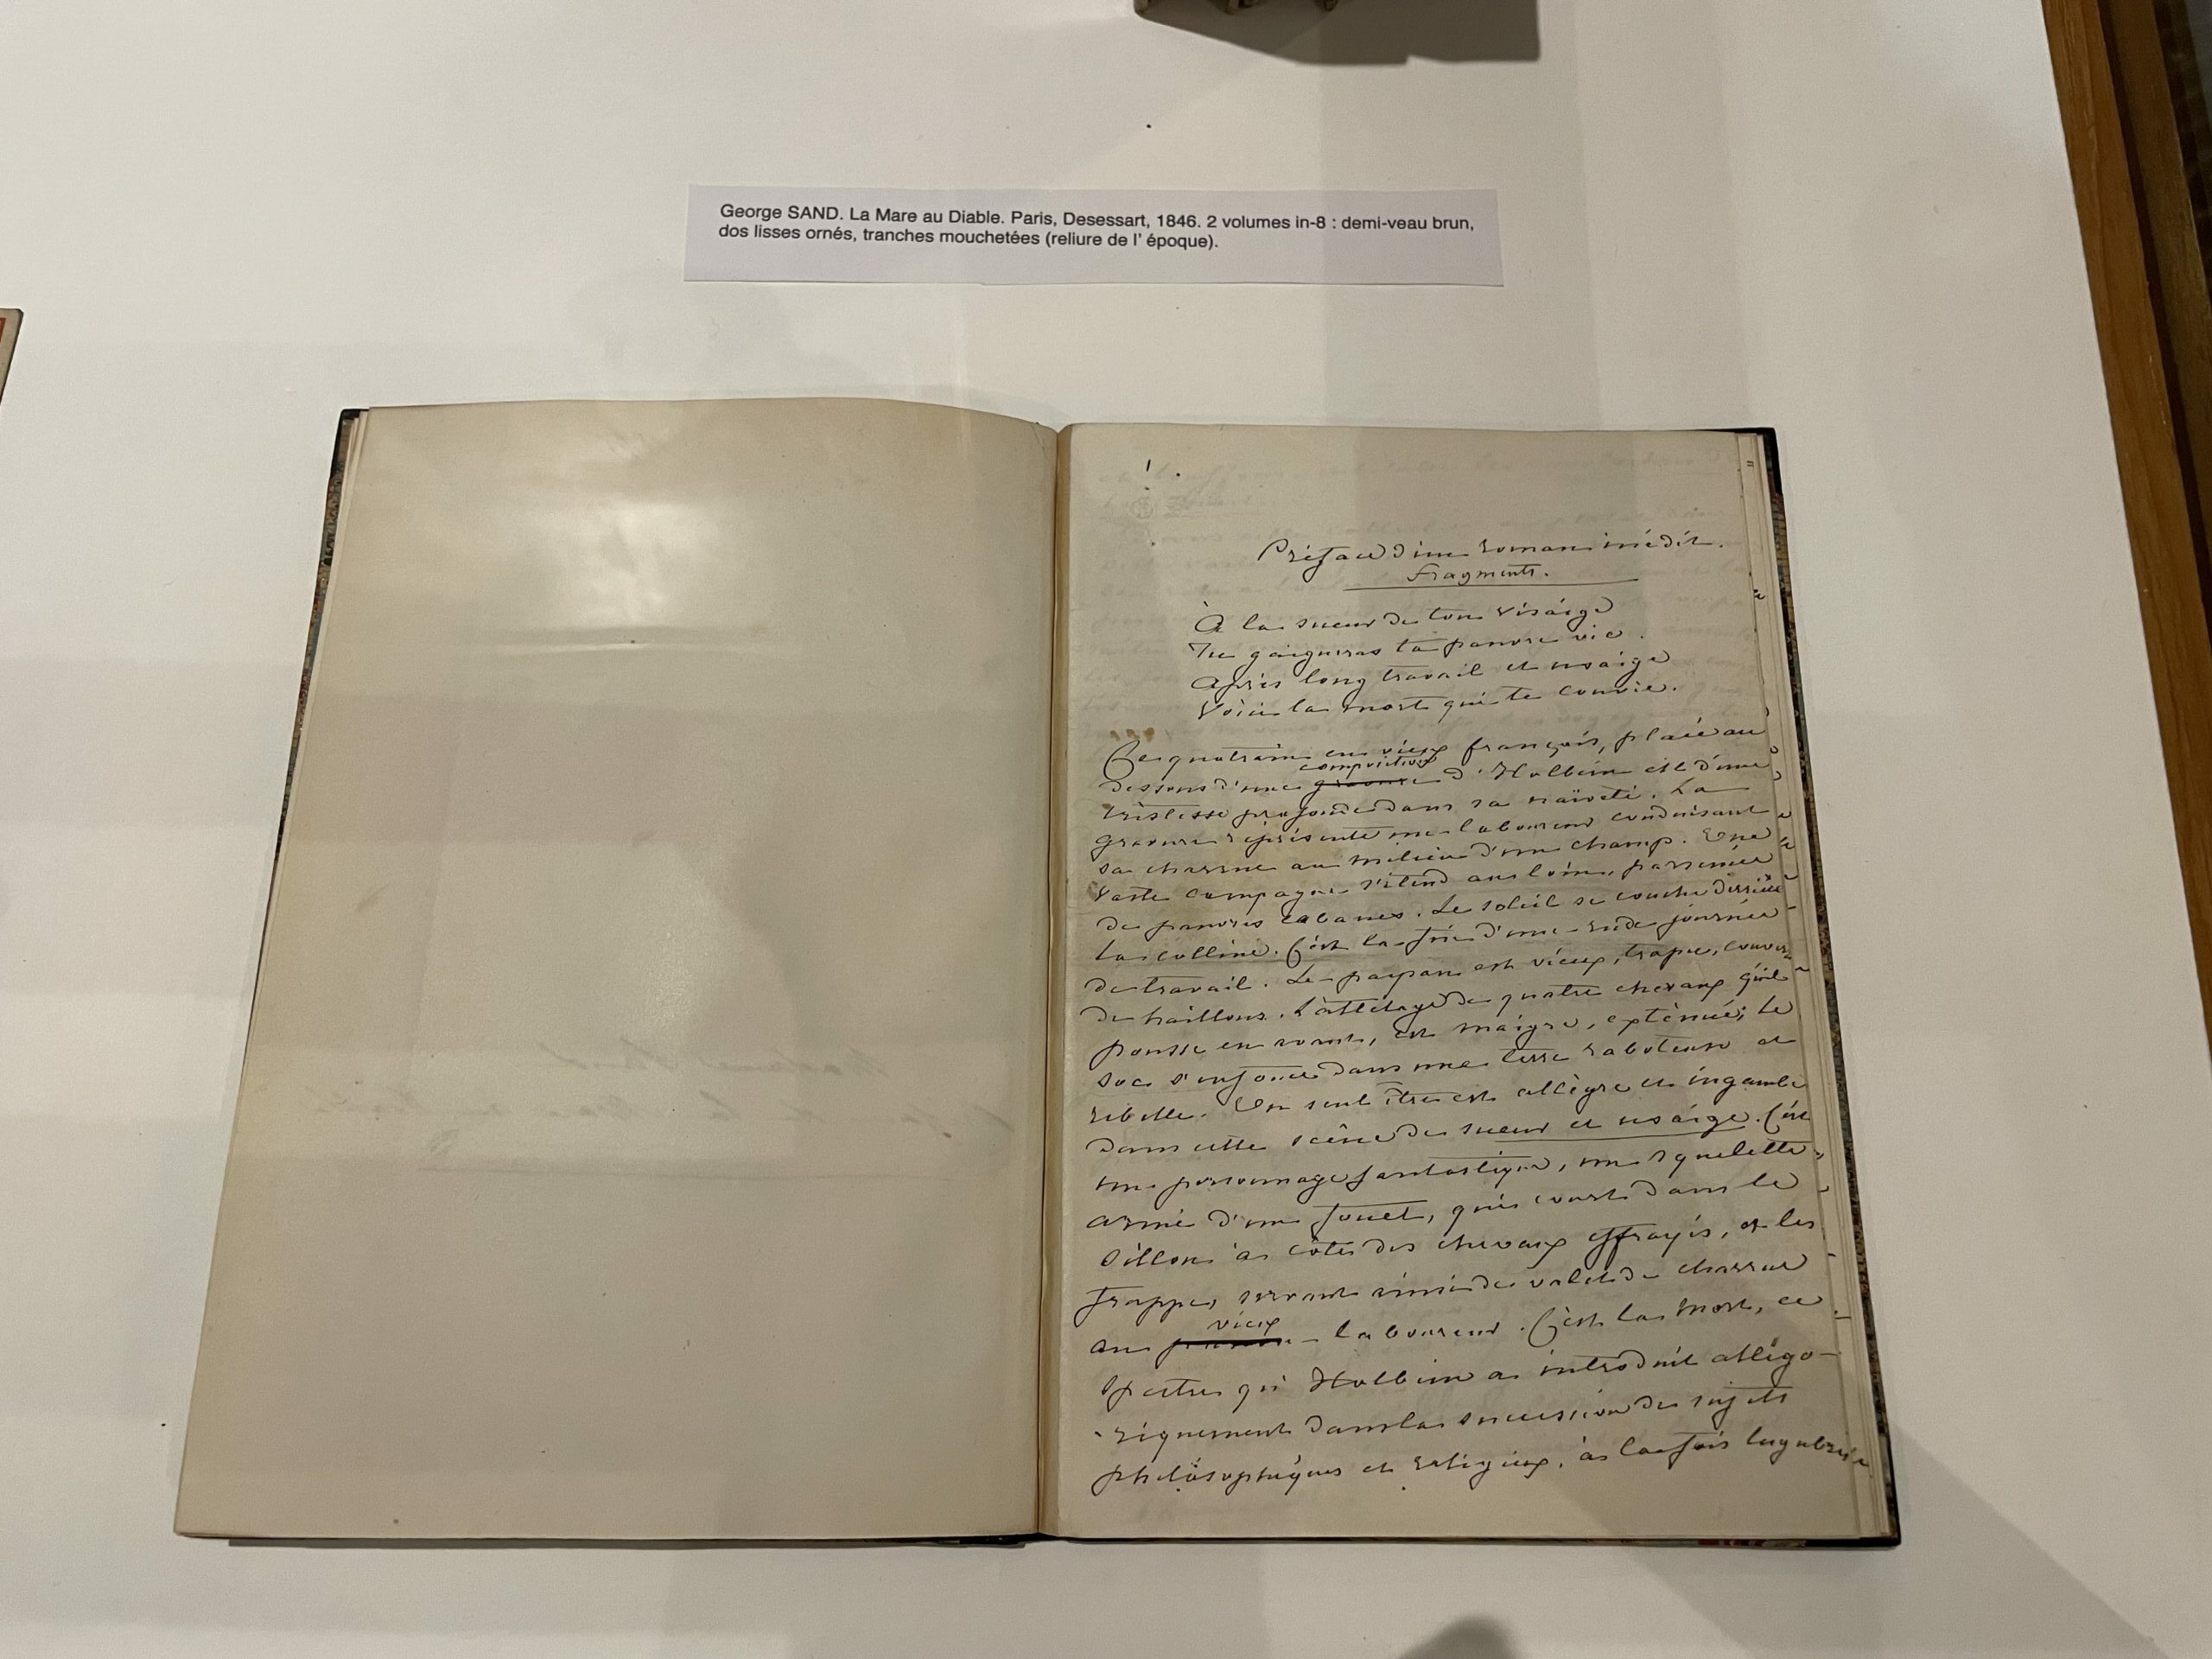 George SAND. La Mare au Diable. Paris, Desessart, 1846. 2 volumes in-8 : demi-veau brun,
dos lisses ornés, tranches mouchetées (reliure de l' époque).
Préface d'un roman inédit.
fragments.
À la sueur de ton visaige
Tu gaigneras ta pauvre vie.
Après long travail et usaige
Voici la mort qui te convie.
Ce quatrain en vieux françois, placé au
composition
dessous d'une gravure d'Holbein est d'une
tristesse profonde dans sa naïveté. La
gravure représente un laboureur conduisant
sa charrue au milieu d'un champ. Une
vaste campagne s'étend au loin, parsemée
de pauvres cabanes. Le soleil se couche derrière
la colline. C'est la fin d'une rude journée
de travail. Le paysan est vieux, trapu, couvert
de haillons. L'attelage de quatre chevaux qu'il
pousse en avant, est maigre, exténué; le
soc s'enfonce dans une terre raboteuse et
rebelle. Un seul être est allègre et ingambe
dans cette scène de sueur et usaige. C'est
un personnage fantastique, un squelette
armé d'un fouet, qui court dans le
sillon à côté des chevaux effrayés, et les
frappe, servant ainsi de valet de charrue
vieux
au laboureur. C'est la mort, ce
spectre qu' Holbein a introduit allégo-
riquement dans la succession de sujets
philosophiques et religieux, à la fois lugubres